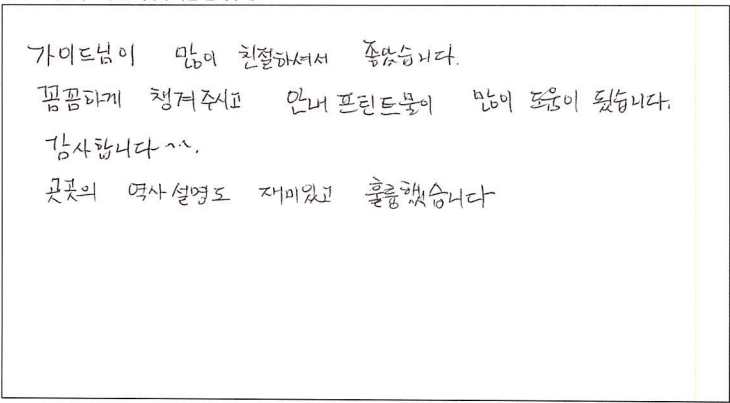 가이드님이 많이 친절하셔서 좋았습니다.
꼼꼼하게 챙겨주시고 안내 프린트물이 많이 도움이 됬습니다.
감사합니다^^.
곳곳의 역사 설명도 재미있고 훌륭했습니다